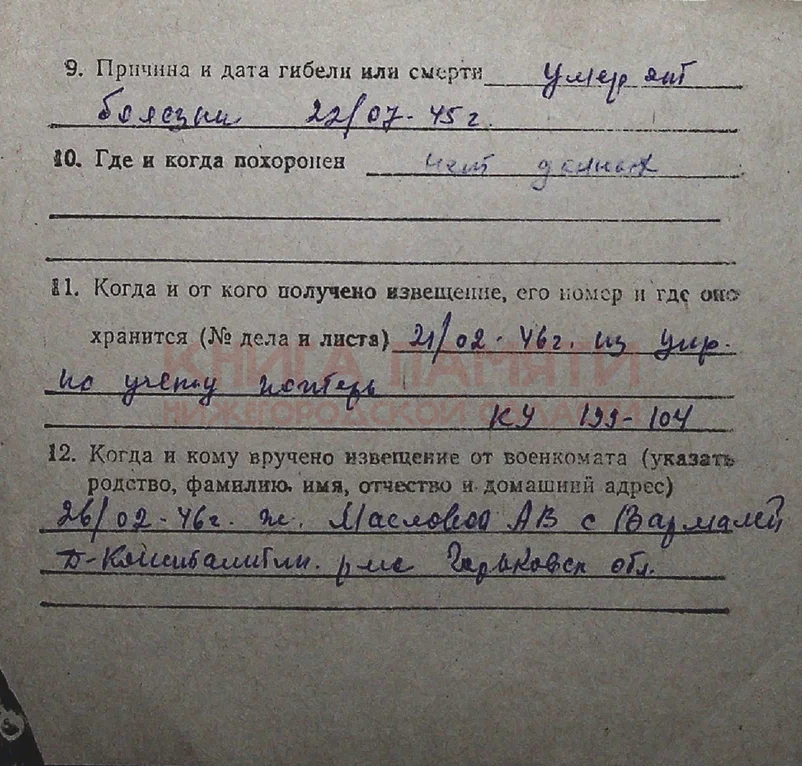 9. Причина и дата гибели или смерти умер от
болезни 22/07-45г.
10. Где и когда похоронен нет данных
11. Когда и от кого получено извещение, его номер и где оно
хранится (№ дела и листа) 21/02-46г. из упр.
по учету потерь
КНИГА ПАМЯТИ
НИЖЕГОРОДСКОЙ ОБЛАСТИ
КУ 199-104
12. Когда и кому вручено извещение от военкомата (указать
родство, фамилию, имя, отчество и домашний адрес)
26/02-46г. ж. Масловой АВ с Вармалей
Д-Констал рна Горьковск обл.